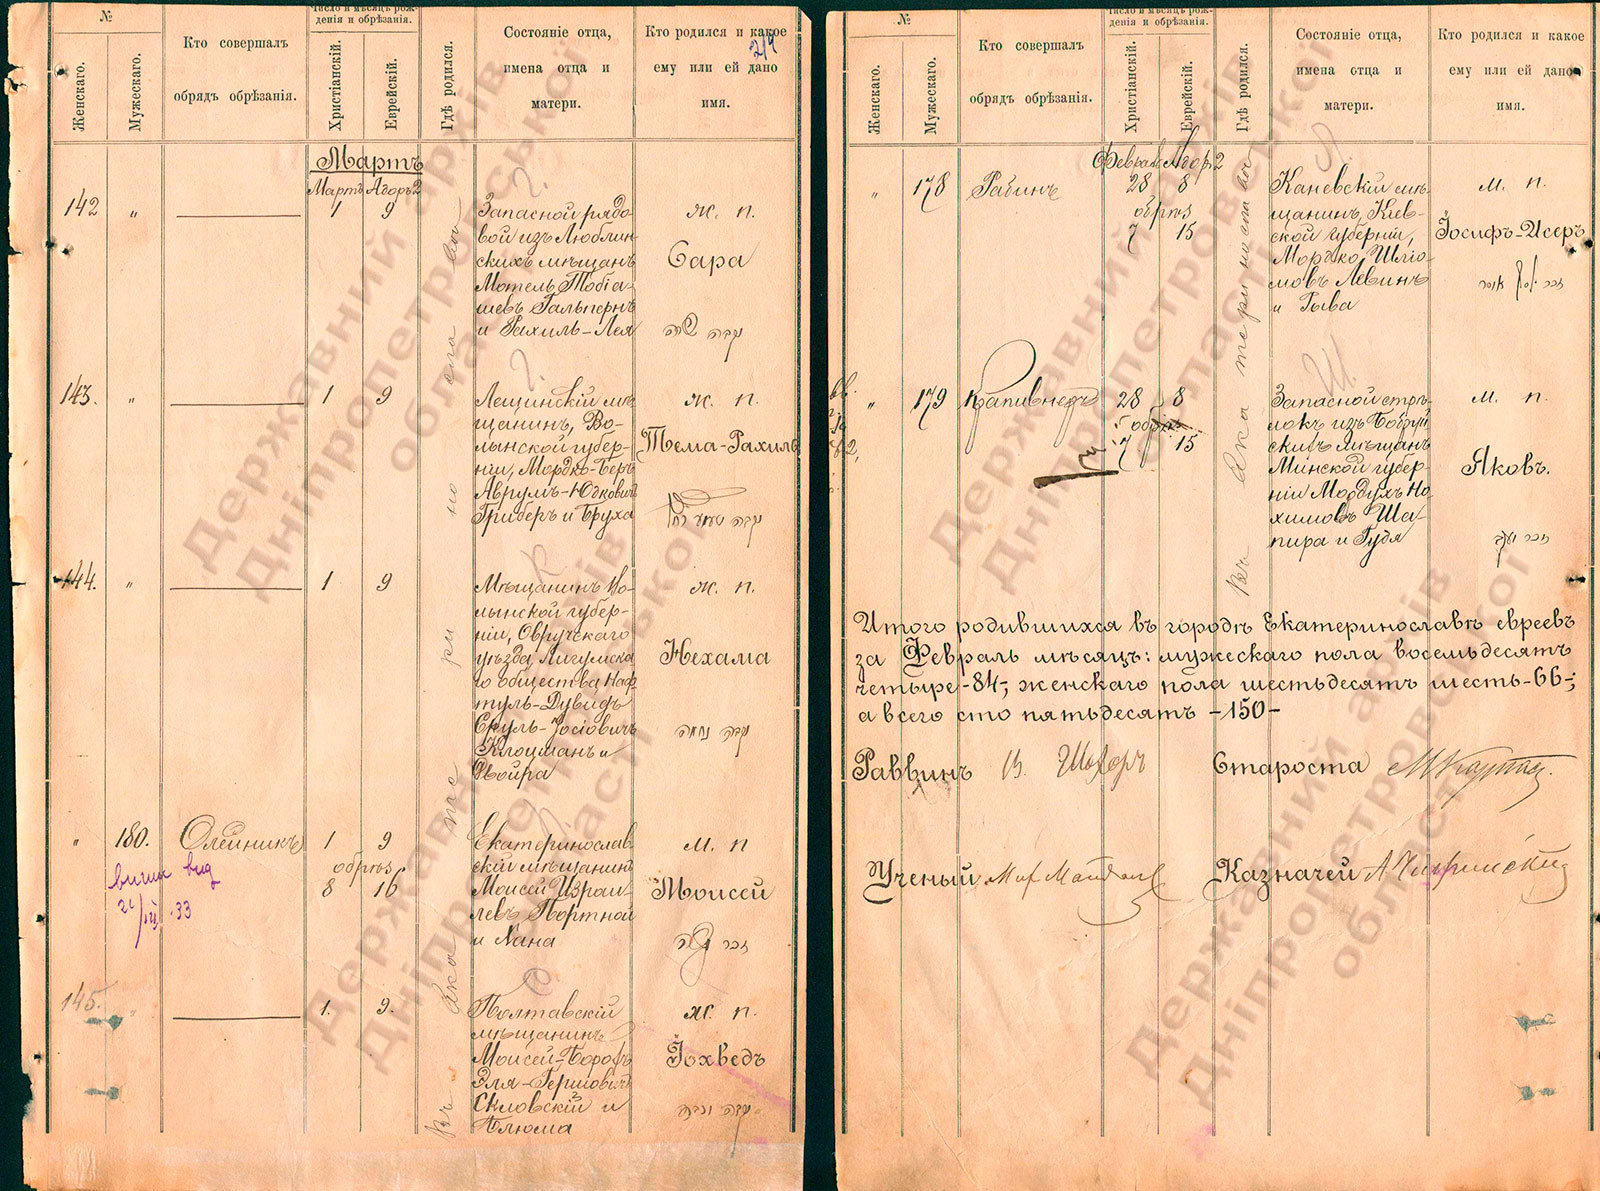 №
Женскаго.
Мужескаго.
Кто совершалъ
обрядъ обрѣзанія.
Число и мѣсяцъ рож-
денія и обрѣзанія.
Христіанскій.
Еврейскій.
Гдѣ родился.
Состояніе отца,
имена отца и
матери.
Кто родился и какое
ему или ей дано
имя.
Мартъ
Мартъ Адоръ 2
142 „ 1 9
Запасной рядо-
вой изъ Люблин-
скихъ мѣщанъ
Мотель Тобіа-
шевъ Гальпернъ
и Рахиль-Лея
ж. п.
Сара
שרה
143. „ 1 9
Лещинскій мѣ-
щанинъ, Во-
лынской губер-
ніи, Мордко-Беръ
Аврумъ-Юдковичъ
Гриберъ и Бруха
ж. п.
Тема-Рахиль
144. „ 1 9
Мѣщанинъ Во-
лынской губер-
ніи, Овручскаго
уѣзда, Лигумска
го общества Наф
туль-Дувидъ
Сруль-Іосіовичъ
Клоцманъ и
Двойра
ж. п.
Нехама
נחמה
„ 180. Олейникъ 1 9
обрѣз
8 16
Екатеринослав
скій мѣщанинъ
Моисей Израи-
левъ Портной
и Хана
м. п
Моисей
משה
33
145. „ 1. 9.
Полтавскій
мѣщанинъ
Моисей-Борохъ
Эля-Гершовичъ
Скловскій и
Блюма
ж. п.
Іохведъ
Въ Екатеринославѣ
№
Женскаго.
Мужескаго.
Кто совершалъ
обрядъ обрѣзанія.
Число и мѣсяцъ рож-
денія и обрѣзанія.
Христіанскій.
Еврейскій.
Гдѣ родился.
Состояніе отца,
имена отца и
матери.
Кто родился и какое
ему или ей дано
имя.
Февраль Адоръ 2
„ 178 Рабинъ 28 8
обрѣз
7 15
Каневскій мѣ-
щанинъ, Кіев-
ской губерніи,
Мордко, Шліо-
мовъ Левинъ
и Рыва
м. п.
Іосифъ-Исеръ
„ 179 Крапивнедъ 28 8
обрѣз
7 15
Запасной стрѣ-
локъ изъ Бобруй
скихъ мѣщанъ
Минской губер-
ніи Мордухъ Но
химовъ Ша-
пира и Гудя
м. п.
Яковъ.
יעקב
Въ Екатеринославѣ
Итого родившихся въ городѣ Екатеринославѣ евреевъ
за Февраль мѣсяцъ: мужескаго пола восемьдесятъ
четыре -84-, женскаго пола шестьдесятъ шесть -66-;
а всего сто пятьдесятъ -150-
Раввинъ В. Шохоръ Староста
Ученый Казначей
Державний архів
Дніпропетровської
області
Державний архів
Дніпропетровської
області
Державний архів
Дніпропетровської
області
Державний архів
Дніпропетровської
області